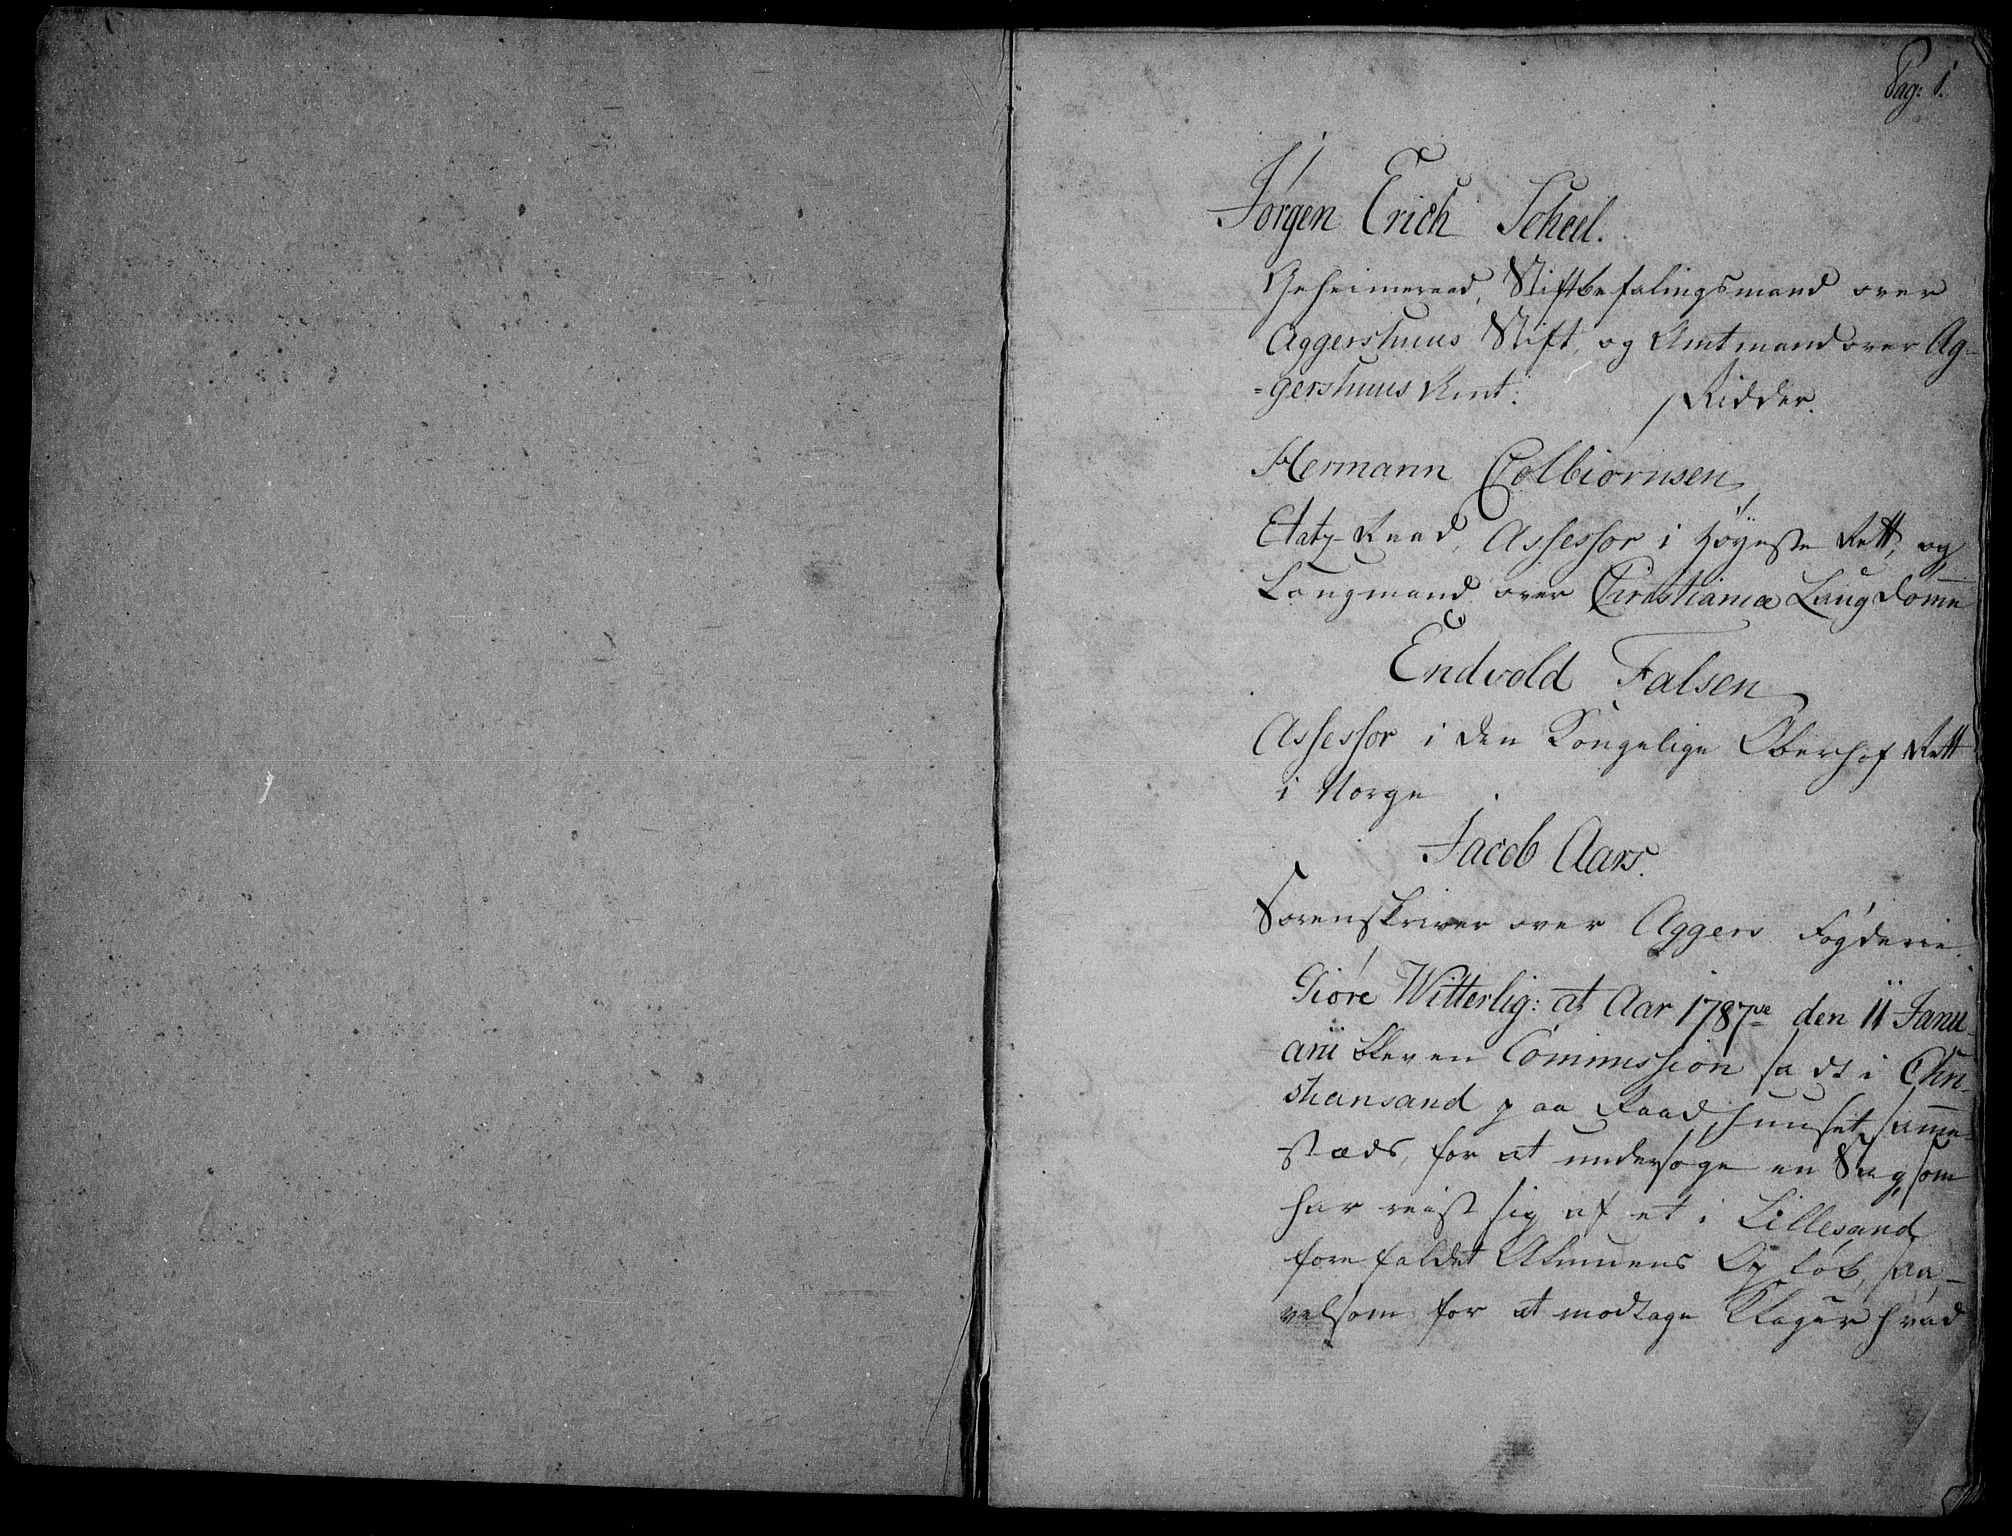 Pag: 1.
Jörgen Erich Scheel.
Geheimeraad, Stiftbefalingsmand over
Aggershuus Stift, og Amtmand over Ag-
-gershuus Amt. Ridder.
Hermann Colbiørnsen,
Etatz-Raad, Assessor i Høyeste Rett, og
Laugmand over Christianiæ Laugdømme
Endvold Falsen
Assessor i den Kongelige Oberhof Rett
i Norge
Jacob Aars.
Sorenskriver over Aggers Fögderie.
Giöre Witterlig: at Aar 1787ve den 11 Janu-
arii blev en Commission sadt i Chri-
stiansand paa Raadhuuset samme-
stæds, for at undersøge en Sag, som
har reist sig af et i Lillesand
forefaldet Almuens Opløb, saa-
velsom for at modtage Klager hvad